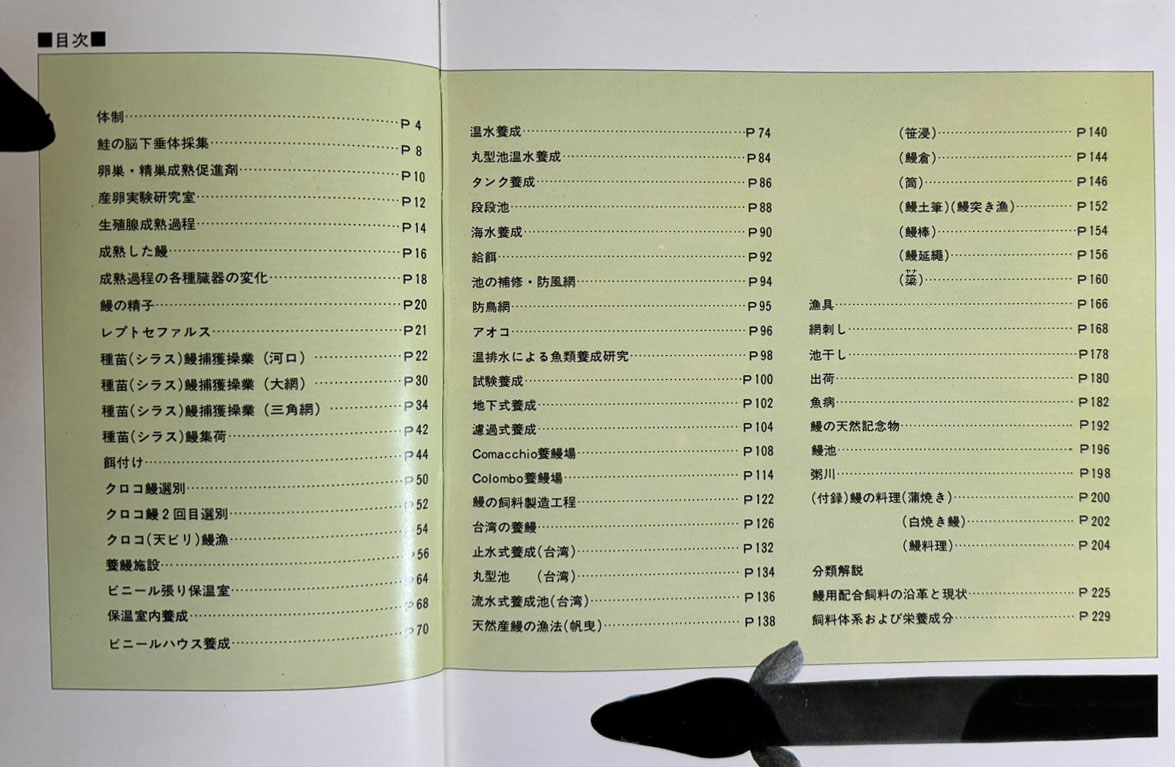 ■目次■
体制……P 4
鮭の脳下垂体採集……P 8
卵巣・精巣成熟促進剤……P 10
産卵実験研究室……P 12
生殖腺成熟過程……P 14
成熟した鰻……P 16
成熟過程の各種臓器の変化……P 18
鰻の精子……P 20
レプトセファルス……P 21
種苗(シラス)鰻捕獲操業（河口）……P 22
種苗(シラス)鰻捕獲操業（大網）……P 30
種苗(シラス)鰻捕獲操業（三角網）……P 34
種苗(シラス)鰻集荷……P 42
餌付け……P 44
クロコ鰻選別……P 50
クロコ鰻2回目選別……P 52
クロコ(天ビリ)鰻漁……P 54
養鰻施設……P 56
ビニール張り保温室……P 64
保温室内養成……P 68
ビニールハウス養成……P 70
温水養成……P 74
丸型池温水養成……P 84
タンク養成……P 86
段段池……P 88
海水養成……P 90
給餌……P 92
池の補修・防風網……P 94
防鳥網……P 95
アオコ……P 96
温排水による魚類養成研究……P 98
試験養成……P 100
地下式養成……P 102
濾過式養成……P 104
Comacchio養鰻場……P 108
Colombo養鰻場……P 114
鰻の飼料製造工程……P 122
台湾の養鰻……P 126
止水式養成(台湾)……P 132
丸型池　(台湾)……P 134
流水式養成池(台湾)……P 136
天然産鰻の漁法(帆曳)……P 138
(笹浸)……P 140
(鰻倉)……P 144
(筒)……P 146
(鰻土筆)(鰻突き漁)……P 152
(鰻棒)……P 154
(鰻延縄)……P 156
(簗)……P 160
漁具……P 166
網刺し……P 168
池干し……P 178
出荷……P 180
魚病……P 182
鰻の天然記念物……P 192
鰻池……P 196
粥川……P 198
(付録)鰻の料理(蒲焼き)……P 200
(白焼き鰻)……P 202
(鰻料理)……P 204
分類解説
鰻用配合飼料の沿革と現状……P 225
飼料体系および栄養成分……P 229